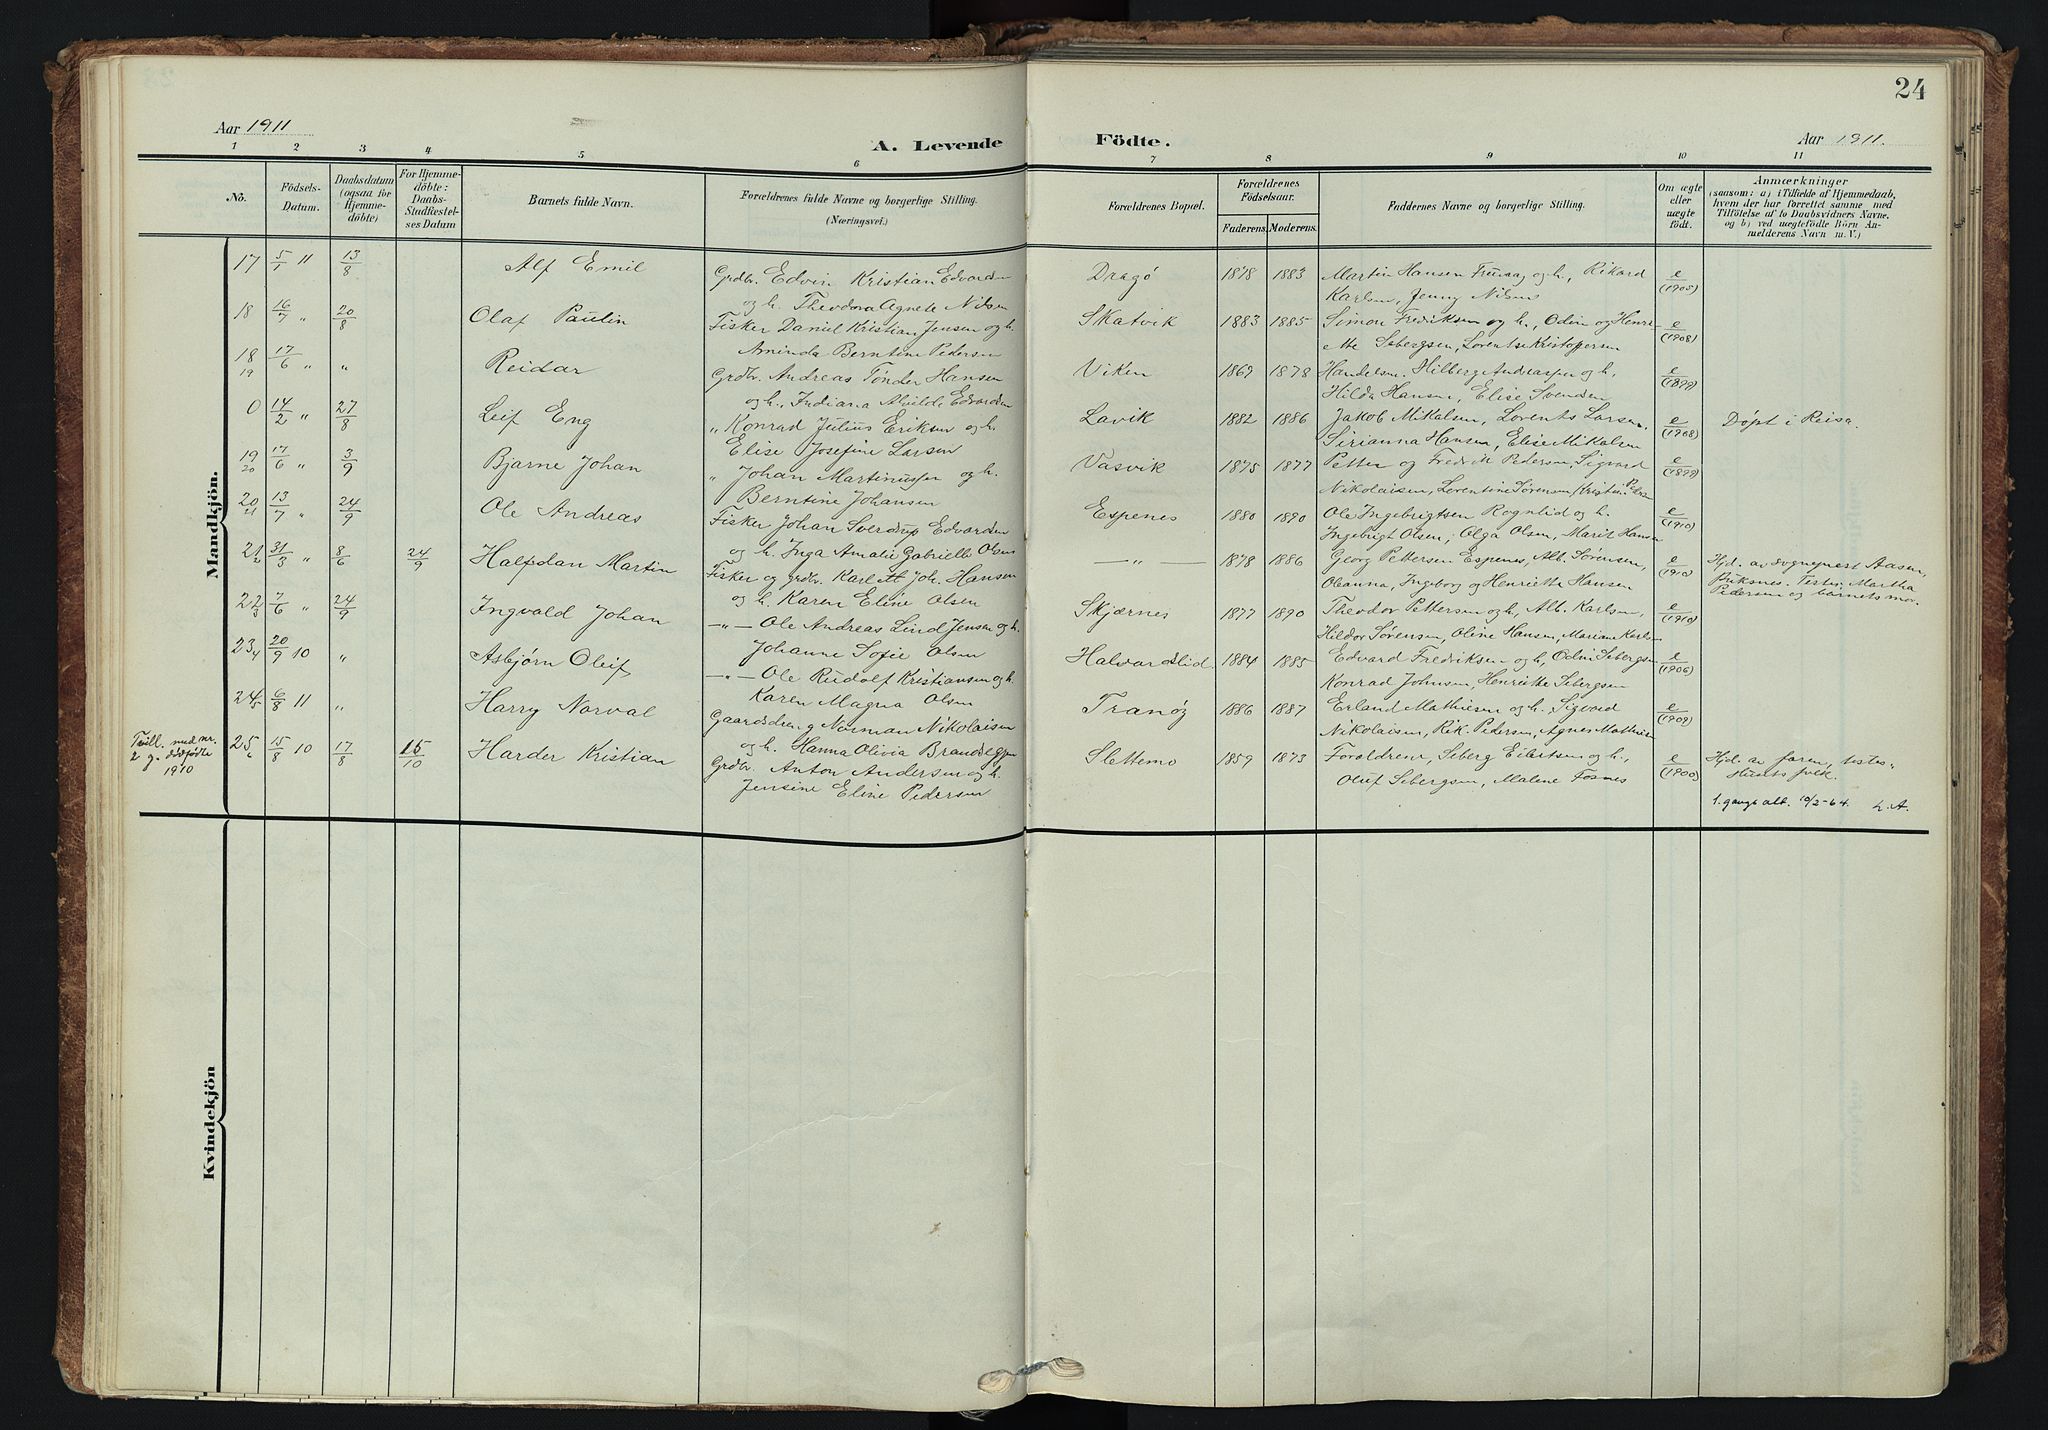 24
Aar 1911
A. Levende Födte.
Aar 1911.
1 2 3 4 5 6 7 8 9 10 11
No.
Födsels-Datum.
Daabsdatum (ogsaa for Hjemme-döbte)
For Hjemme-döbte: Daabs-Stadfæstel-ses Datum
Barnets fulde Navn.
Forældrenes fulde Navne og borgerlige Stilling. (Næringsvei.)
Forældrenes Bopæl.
Forældrenes Födselsaar.
Faderens. Moderens.
Faddernes Navne og borgerlige Stilling.
Om ægte eller uægte födt.
Anmærkninger
(saasom: a) i Tilfælde af Hjemmedaab, hvem der har forrettet samme med Tilföielse af to Daabsvidners Navne, og b) ved uægtefödte Börn An-melderens Navn m. V.)
Mandkjön.
17 5/1 11 13/8 Alf Emil Grdbr. Edvin Kristian Edvardsen Dragö 1878 1883 Martin Hansen og h., Rikard e
og h. Theodora Agnete Nilsen Karlsen, Jenny Nilsen (1905)
18 16/7 " 20/8 Olaf Paulin Fisker Daniel Kristian Jensen og h. Skatvik 1883 1885 Simon Fredriksen og h., Odin og Henri- e
Aminda Berntine Pedersen ette Sebergsen, Lorentse Kristoffersen (1908)
18 19 17/6 " " Reidar Grdbr. Andreas Tønder Hansen Viken 1869 1878 Handelsm. Hilberg Andreassen og h. e
og h., Indiana Alvilde Edvardsen Hilda Hansen, Elise Svendsen (1899)
0 14/2 " 27/8 Leif Eng " Konrad Julius Eriksen og h. Lavik 1882 1886 Jakob Mikalsen, Lorents Larsen, e Døpt i Reisa.
Elise Josefine Larsen Sirianna Hansen, Elise Mikalsen (1908)
19 20 17/6 " 3/9 Bjarne Johan " Johan Martinussen og h. Vasvik 1875 1877 Petter og Fredrik Pedersen, Sigvard e
Berntine Johansen Nikolaisen, Lorentine Sørensen, Kristin Peders. (1899)
20 21 13/7 " 24/9 Ole Andreas Fisker Johan Sverdrup Edvardsen Espenes 1880 1890 Ole Ingebrigtsen Rognlid og h. e
og h. Inga Amalie Gabrielle Olsen Ingebrigt Olsen, Olga Olsen, Marit Hansen (1910)
21 2 31/3 " 8/6 24/9 Halfdan Martin Fisker og grdbr. Karl M Joh. Hansen — " — 1878 1886 Georg Pettersen Espenes, Alb. Sørensen, e Hjd. av sogneprest Aasen,
og h. Karen Eline Olsen Oleanna, Ingeborg og Henriette Hansen (1910) Briksnes. Test: Martha Pedersen og barnets mor.
22 3 7/6 " 24/9 Ingvald Johan — " — Ole Andreas Lind Jensen og h. Skjærnes 1877 1890 Theodor Pettersen og h., Alb. Karlsen, e
Johanne Sofie Olsen Hildor Sørensen, Oline Hansen, Mariane Karlsen (1910)
23 4 20/9 10 " Asbjørn Oleif — " — Ole Rudolf Kristiansen og h. Halvardslid 1884 1885 Edvard Fredriksen og h., Odin Sebergsen e
Karen Magna Olsen Konrad Johnsen, Henriette Sebergsen (1906)
24 5 6/8 11 " Harry Norval Gaardsdreng Norman Nikolaisen Tranøy 1886 1887 Erland Mathisen og h. Sigvard e
og h. Hanna Olivia Brandseggen Nikolaisen, Rik. Pedersen, Agnes Mathisen (1909)
Tvill. med nr. 2 g. dødfødte 1910
25 6 15/8 10 17/8 15/10 Harder Kristian Grdbr. Anton Andersen og h. Slettemo 1859 1873 Foreldrene, Seberg Eilertsen og h., e Hjd. av faren, testes:
Jensine Eline Pedersen Oluf Sebergsen, Malene Fosnes (1900) Husets folk.
1. gangs att. 10/2-64 L.A.
Kvindekjön